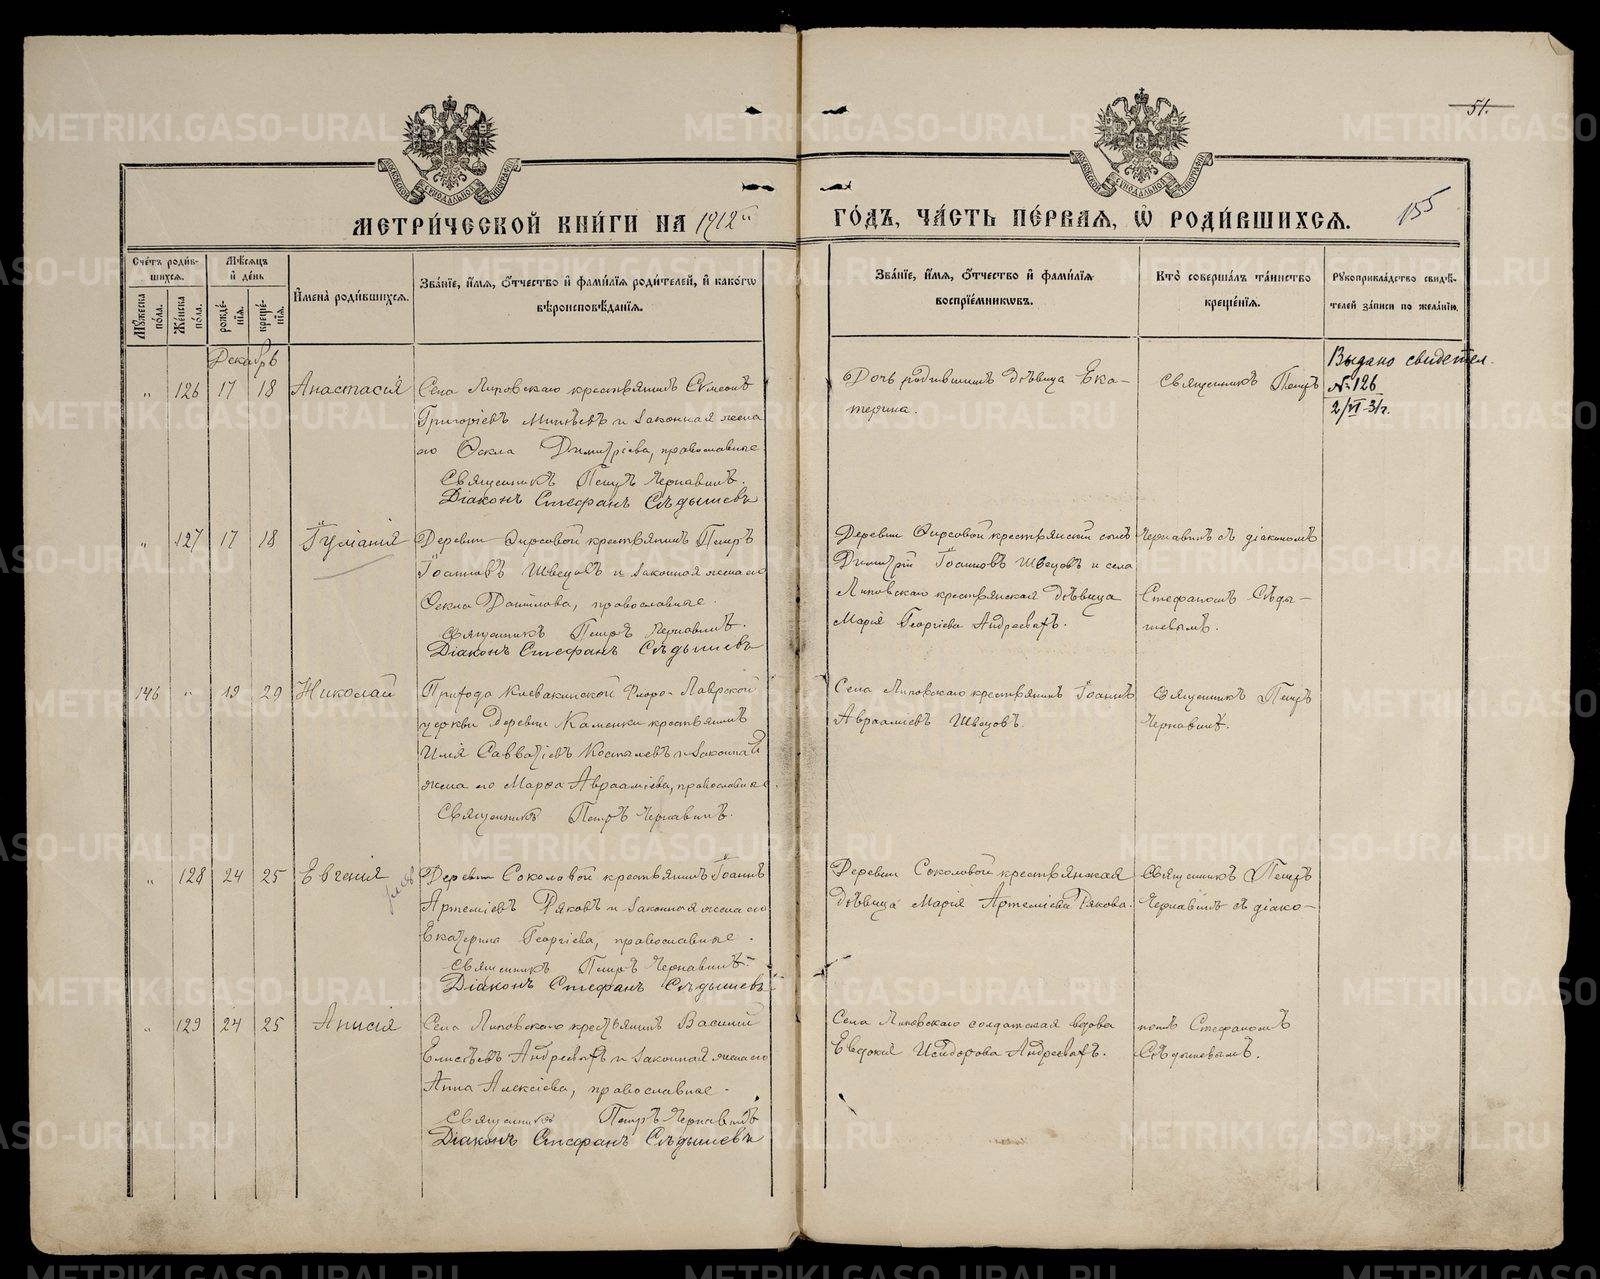 51.
155
МЕТРИ́ЧЕСКОЙ КНИ́ГИ НА 1912й
ГО́ДЪ, ЧА́СТЬ ПЕ́РВАЯ, Ѡ҆ РОДИ́ВШИХСЯ.
Сче́тъ роди́в-
шихся.
Мꙋ́жеска
по́ла.
Же́нска
по́ла.
Мѣ́сяцъ
и҆ де́нь
рожде́-
нїя.
креще́-
нїя.
И҆мена̀ роди́вшихся.
Зва́нїе, и҆́мя, ѻ҆́тчество и҆ фами́лїя роди́телей, и҆ како́гѡ
вѣроисповѣ́данїя.
Зва́нїе, и҆́мя, ѻ҆́тчество и҆ фами́лїя
воспрїе́мникѡвъ.
Кто̀ соверша́лъ та́инство
креще́нїя.
Рꙋкоприкла́дство свидѣ́-
телей за́писи по жела́нїю.
Декабрь
„ 126 17 18 Анастасія
Села Липовскаго крестьянинъ Сѵмеонъ
Григоріевъ Минѣевъ и законная жена
его Ѳекла Димитріева, православные
Священникъ Петръ Чернавинъ.
Діаконъ Стефанъ Сѣдышевъ
Дочь родившихъ дѣвица Ека-
терина.
Священникъ Петръ
Выдано свидетел.
№ 126
2/VI-31г.
„ 127 17 18 Іуліанія
Деревни Фирсовой крестьянинъ Петръ
Іоанновъ Швецовъ и законная жена его
Ѳекла Даніилова, православные.
Священникъ Петръ Чернавинъ.
Діаконъ Стефанъ Сѣдышевъ
Деревни Фирсовой крестьянскій сынъ
Димитрій Іоанновъ Швецовъ и села
Липовскаго крестьянская дѣвица
Марія Георгіева Андреевыхъ.
Чернавинъ съ діакономъ
Стефаномъ Сѣды-
шевымъ.
146 „ 19 29 Николай
Прихода Клевакинской Флоро-Лаврской
церкви деревни Каменки крестьянинъ
Илія Савватіевъ Костылевъ и законная
жена его Марѳа Авраамиева, православные
Священникъ Петръ Чернавинъ.
Села Липовскаго крестьянинъ Іоаннъ
Авраамиевъ Швецовъ.
Священникъ Петръ
Чернавинъ.
„ 128 24 25 Евгенія
Деревни Соколовой крестьянинъ Іоаннъ
Артеміевъ Ряковъ и законная жена его
Екатерина Георгіева, православные.
Священникъ Петръ Чернавинъ.
Діаконъ Стефанъ Сѣдышевъ
Деревни Соколовой крестьянская
дѣвица Марія Артеміева Рякова.
Священникъ Петръ
Чернавинъ съ діако-
„ 129 24 25 Анисія
Села Липовскаго крестьянинъ Василій
Елисѣевъ Андреевыхъ и законная жена его
Анна Алексіева, православные.
Священникъ Петръ Чернавинъ
Діаконъ Стефанъ Сѣдышевъ
Села Липовскаго солдатская вдова
Евдокія Исидорова Андреевыхъ.
номъ Стефаномъ
Сѣдышевымъ.